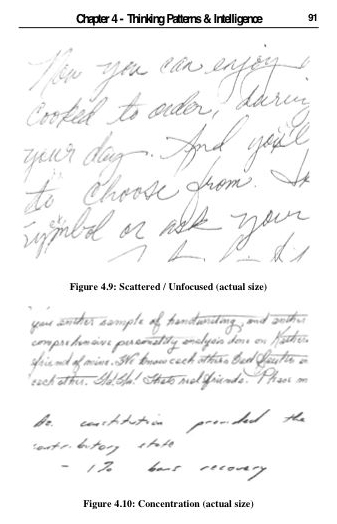 Chapter 4 - Thinking Patterns & Intelligence 91
Now you can enjoy
Cooked to order, during
your day. And you'll
to choose from. In
symbol or ask your
Figure 4.9: Scattered / Unfocused (actual size)
you another sample of handwriting, and another
comprehensive personality analysis done on Kather
friend of mine. We know each others Bad Qualities
each other. Ha! Ha! Thats real friends. Phase
constitution provided the
contributory state
- 1% bars recovery
Figure 4.10: Concentration (actual size)